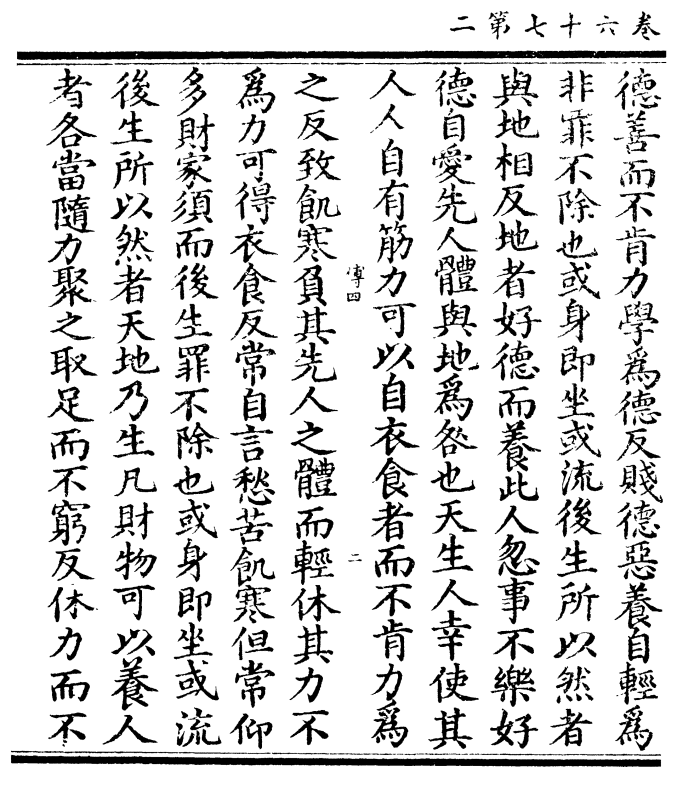 卷六十七第二
德善而不肯力學爲德反賤德惡養自輕爲
非罪不除也或身即坐或流後生所以然者
與地相反地者好德而養此人忽事不樂好
德自愛先人體與地爲咎也天生人幸使其
人人自有筋力可以自衣食者而不肯力爲
傅四 二
之反致飢寒負其先人之體而輕休其力不
爲力可得衣食反常自言愁苦飢寒但常仰
多財家須而後生罪不除也或身即坐或流
後生所以然者天地乃生凡財物可以養人
者各當隨力聚之取足而不窮反休力而不